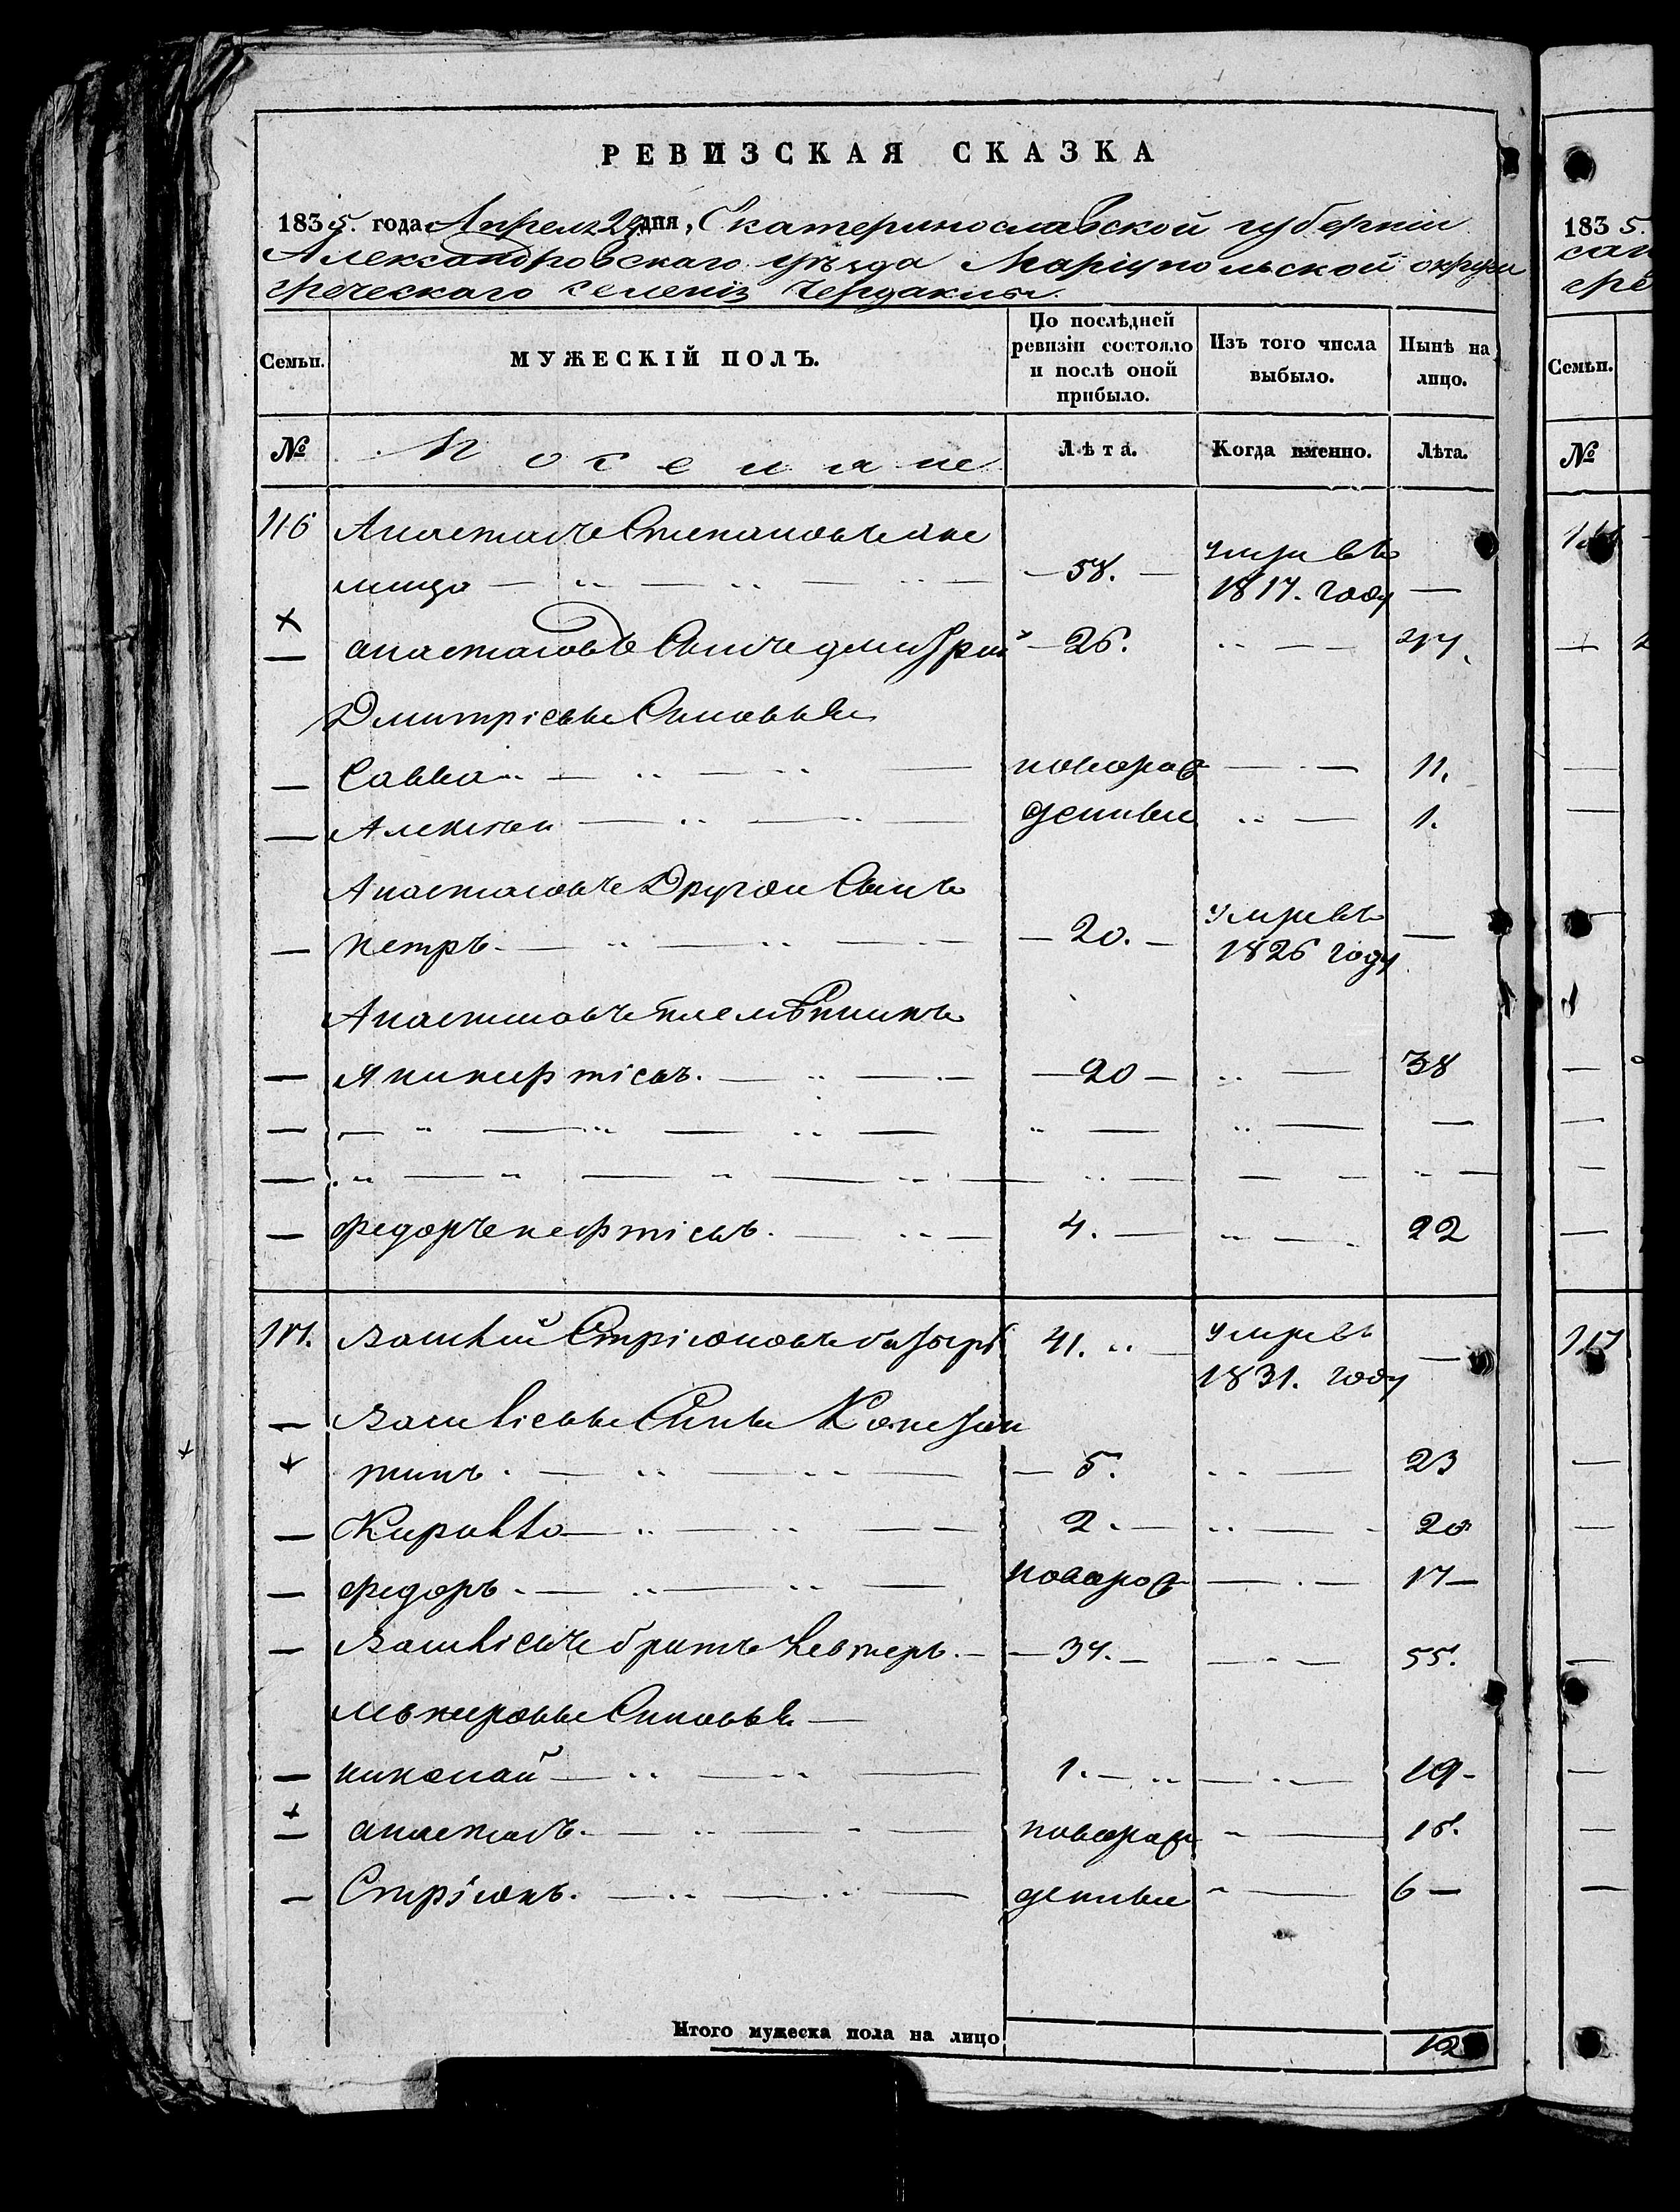 РЕВИЗСКАЯ СКАЗКА
1835. года Апреля 29 дня, Екатеринославской губернии
Александровскаго уѣзда Маріупольской округи
греческаго селенія Чердаклы.
Семьи. МУЖЕСКІЙ ПОЛЪ. По послѣдней ревизіи состояло и послѣ оной прибыло. Изъ того числа выбыло. Нынѣ на лицо.
№ Поселяне Лѣта. Когда именно. Лѣта.
116 Анастасъ Степановъ
58. умре въ 1817. году —
анастасовъ Сынъ дмитрій 26. 44.
Дмитріевы Синовья
Савва новорож 11.
Алексѣй денные 1.
Анастасовъ Другои Сынъ
петръ 20. умре въ 1826 году —
Анастасовъ племѣнникъ
20 38
федоръ 4. 22
117. Василій Стріоновъ 41. умре въ 1831. году —
Василіевы Сины Констан
тинъ 5. 23
Кирякo 2. 20
федоръ новорож 17
Василіевъ братъ 37. 55.
Синовья
николай 1. 19
анастасъ новорож 15.
Стріонъ денные 6
Итого мужеска пола на лицо 12
1835.
Семьи.
№
117